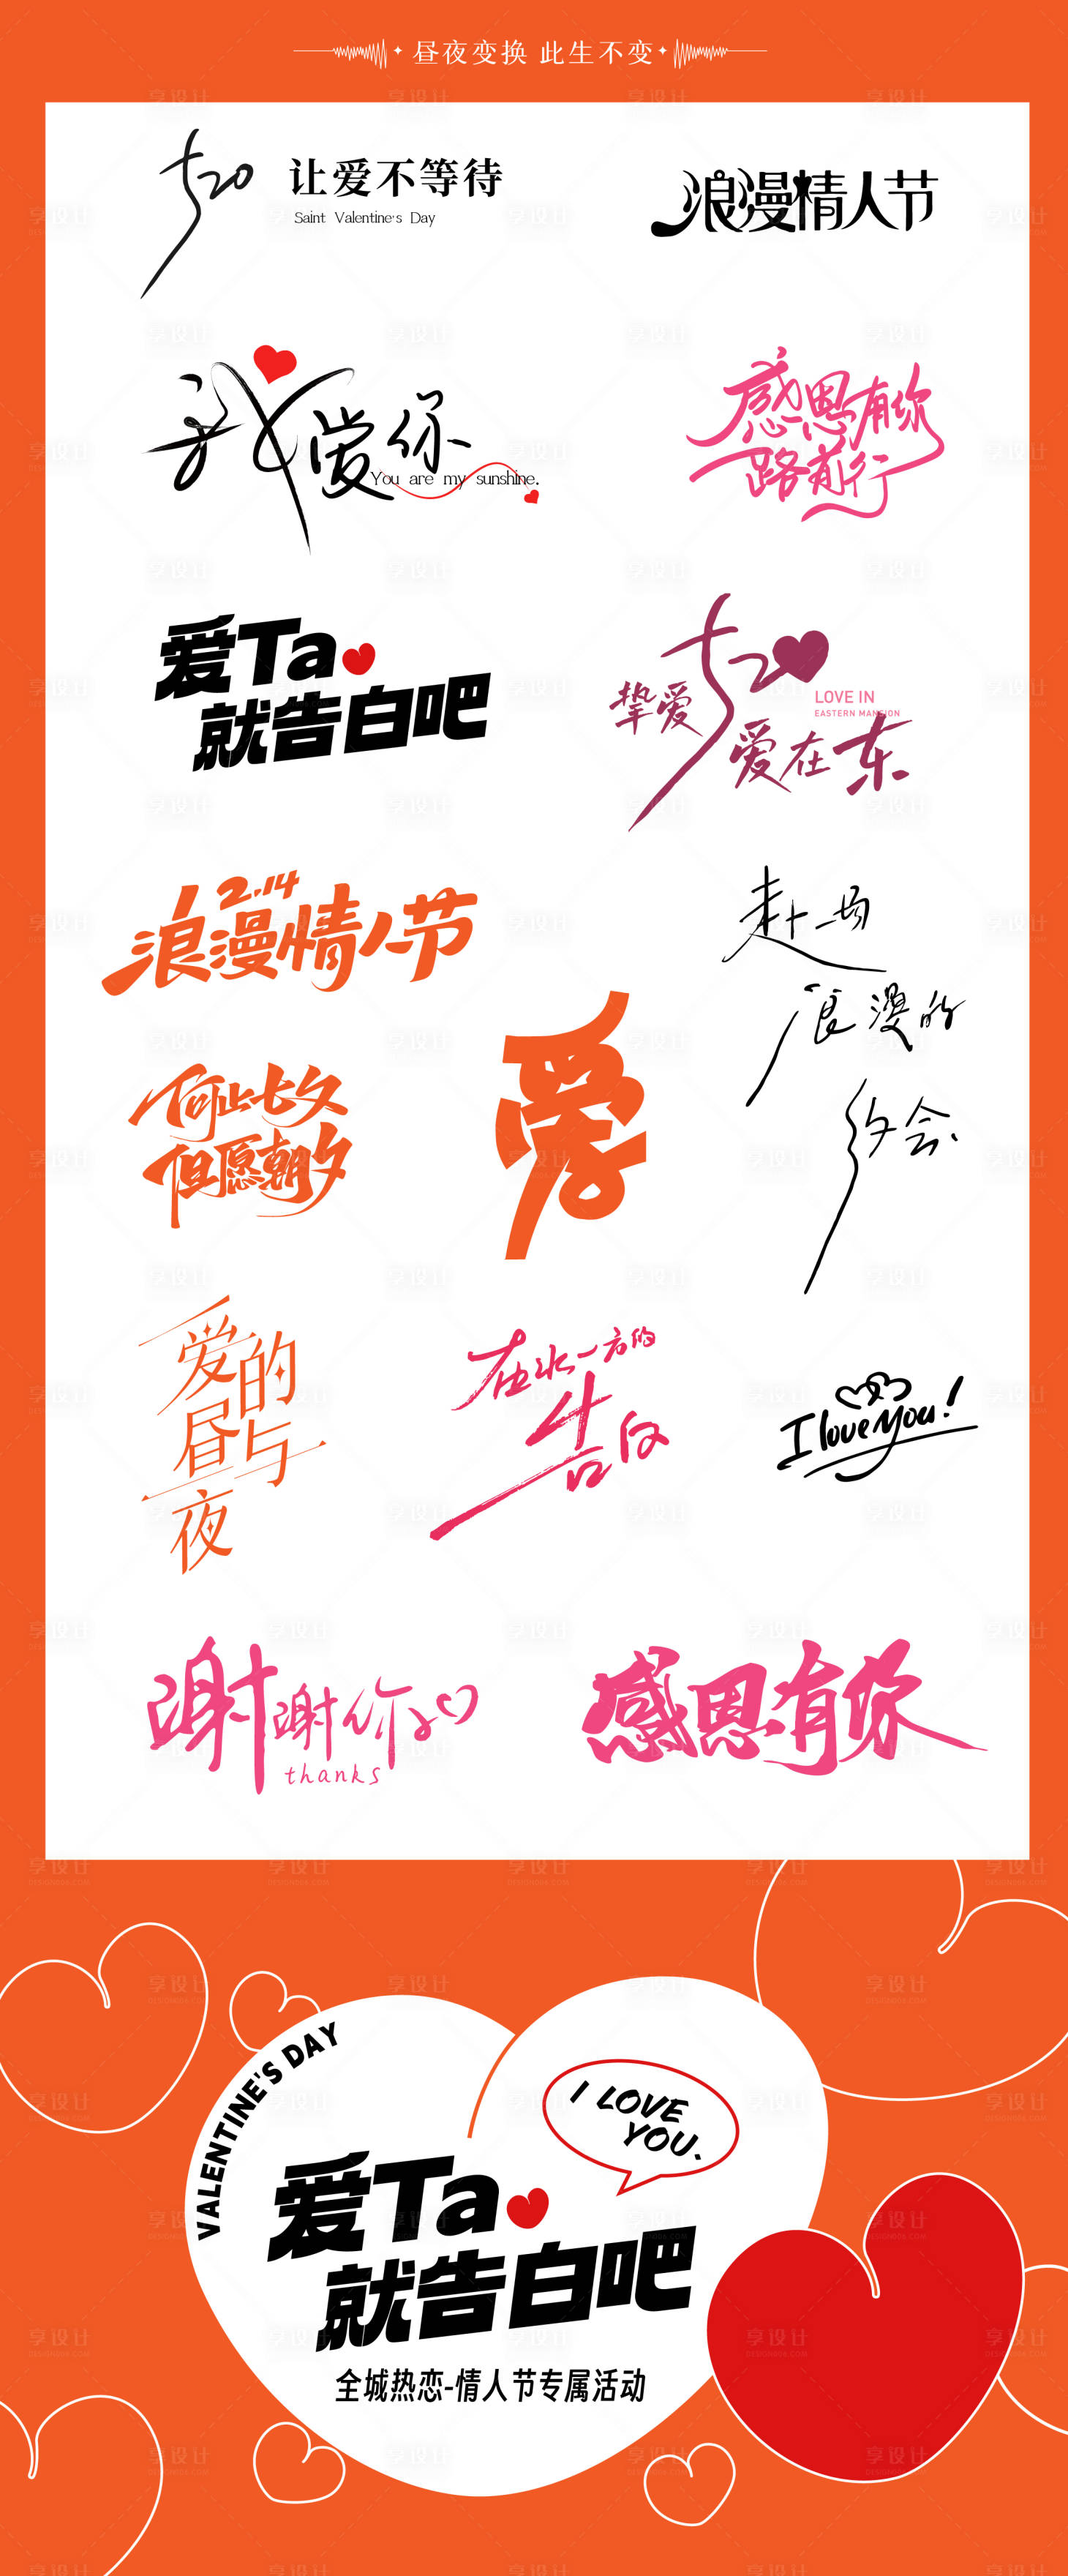 昼夜变换 此生不变
520
让爱不等待
Saint Valentine's Day
浪漫情人节
我爱你
You are my sunshine.
感恩有你
路前行
爱Ta
就告白吧
挚爱
520
LOVE IN
EASTERN MANSION
爱在东
2.14
浪漫情人节
赴一场
浪漫的
约会
何止七夕
但愿朝夕
爱
爱的
昼与
夜
在水一方的
告白
I love you!
谢谢你
thanks
感恩有你
VALENTINE'S DAY
I LOVE
YOU.
爱Ta
就告白吧
全城热恋-情人节专属活动
享设计
DESIGN006.COM